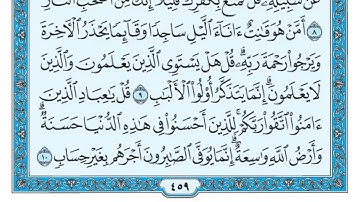 عَن سَبِيلِهِۦۚ قُلۡ تَمَتَّعۡ بِكُفۡرِكَ قَلِيلًا إِنَّكَ مِنۡ أَصۡحَٰبِ ٱلنَّارِ
٨ أَمَّنۡ هُوَ قَٰنِتٌ ءَانَآءَ ٱلَّيۡلِ سَاجِدٗا وَقَآئِمٗا يَحۡذَرُ ٱلۡأٓخِرَةَ
وَيَرۡجُواْ رَحۡمَةَ رَبِّهِۦۗ قُلۡ هَلۡ يَسۡتَوِي ٱلَّذِينَ يَعۡلَمُونَ وَٱلَّذِينَ
لَا يَعۡلَمُونَۗ إِنَّمَا يَتَذَكَّرُ أُوْلُواْ ٱلۡأَلۡبَٰبِ ٩ قُلۡ يَٰعِبَادِ ٱلَّذِينَ
ءَامَنُواْ ٱتَّقُواْ رَبَّكُمۡۚ لِلَّذِينَ أَحۡسَنُواْ فِي هَٰذِهِ ٱلدُّنۡيَا حَسَنَةٞۗ
وَأَرۡضُ ٱللَّهِ وَٰسِعَةٌۗ إِنَّمَا يُوَفَّى ٱلصَّٰبِرُونَ أَجۡرَهُم بِغَيۡرِ حِسَابٖ ١٠
٤٥٩